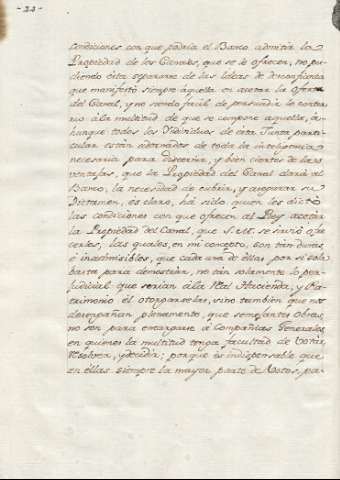 -22-
condiciones con que podria el Banco admitir la
Propiedad de los Canales, que se le ofrecen, no pu-
diendo ésta separarse de las Ideas de desconfianza
que manifestó siempre aquella en acetar la oferta
del Canal, y no siendo facil de persuadir lo contra-
rio á la multitud de que se compone aquella, á-
hunque todos los Yndividuos de esta Junta parti-
cular están adornados de toda la inteligencia
necesaria para discernir, y bien ciertos de las
ventajas, que la Propiedad del Canal daria al
Banco, la necesidad de cubrir, y apoyar su
Dictamen, es claro, há sido quien les dictó
las condiciones con que ofrecen al Rey acetar
la Propiedad del Canal, que S.M. se sirvió ofre-
cerles, las quales, en mi concepto, son tan duras,
é inadmisibles, que cada una de ellas por si sola
basta para demostrar, no tan solamente lo per-
judicial que serian á la Real Hacienda, y Pa-
trimonio él otorgarselas, sino tambien que nos
desengañan plenamente, que semejantes obras
no son para encargarse á Compañias Generales
en quienes la multitud tenga facultad de Votar,
Resolver, y decidir; porque és indispensable que
en éllas siempre la mayor parte de Votos, pa-